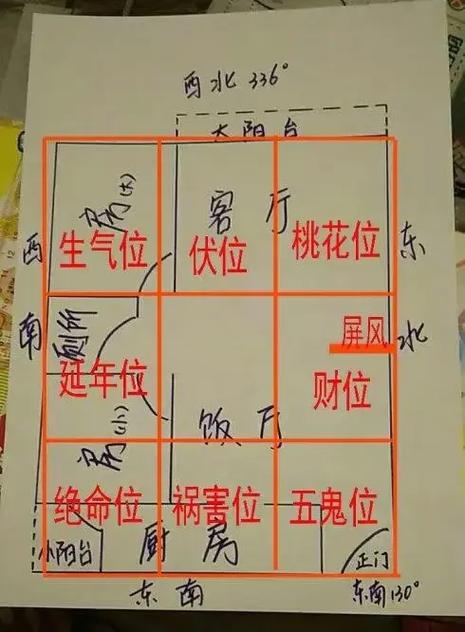 西北 336°
大阳台
房(大)
客厅
生气位
伏位
桃花位
西南
东北
厕所
屏风
延年位
财位
房(小)
饭厅
绝命位
祸害位
五鬼位
小阳台
厨房
正门
东南
东南130°